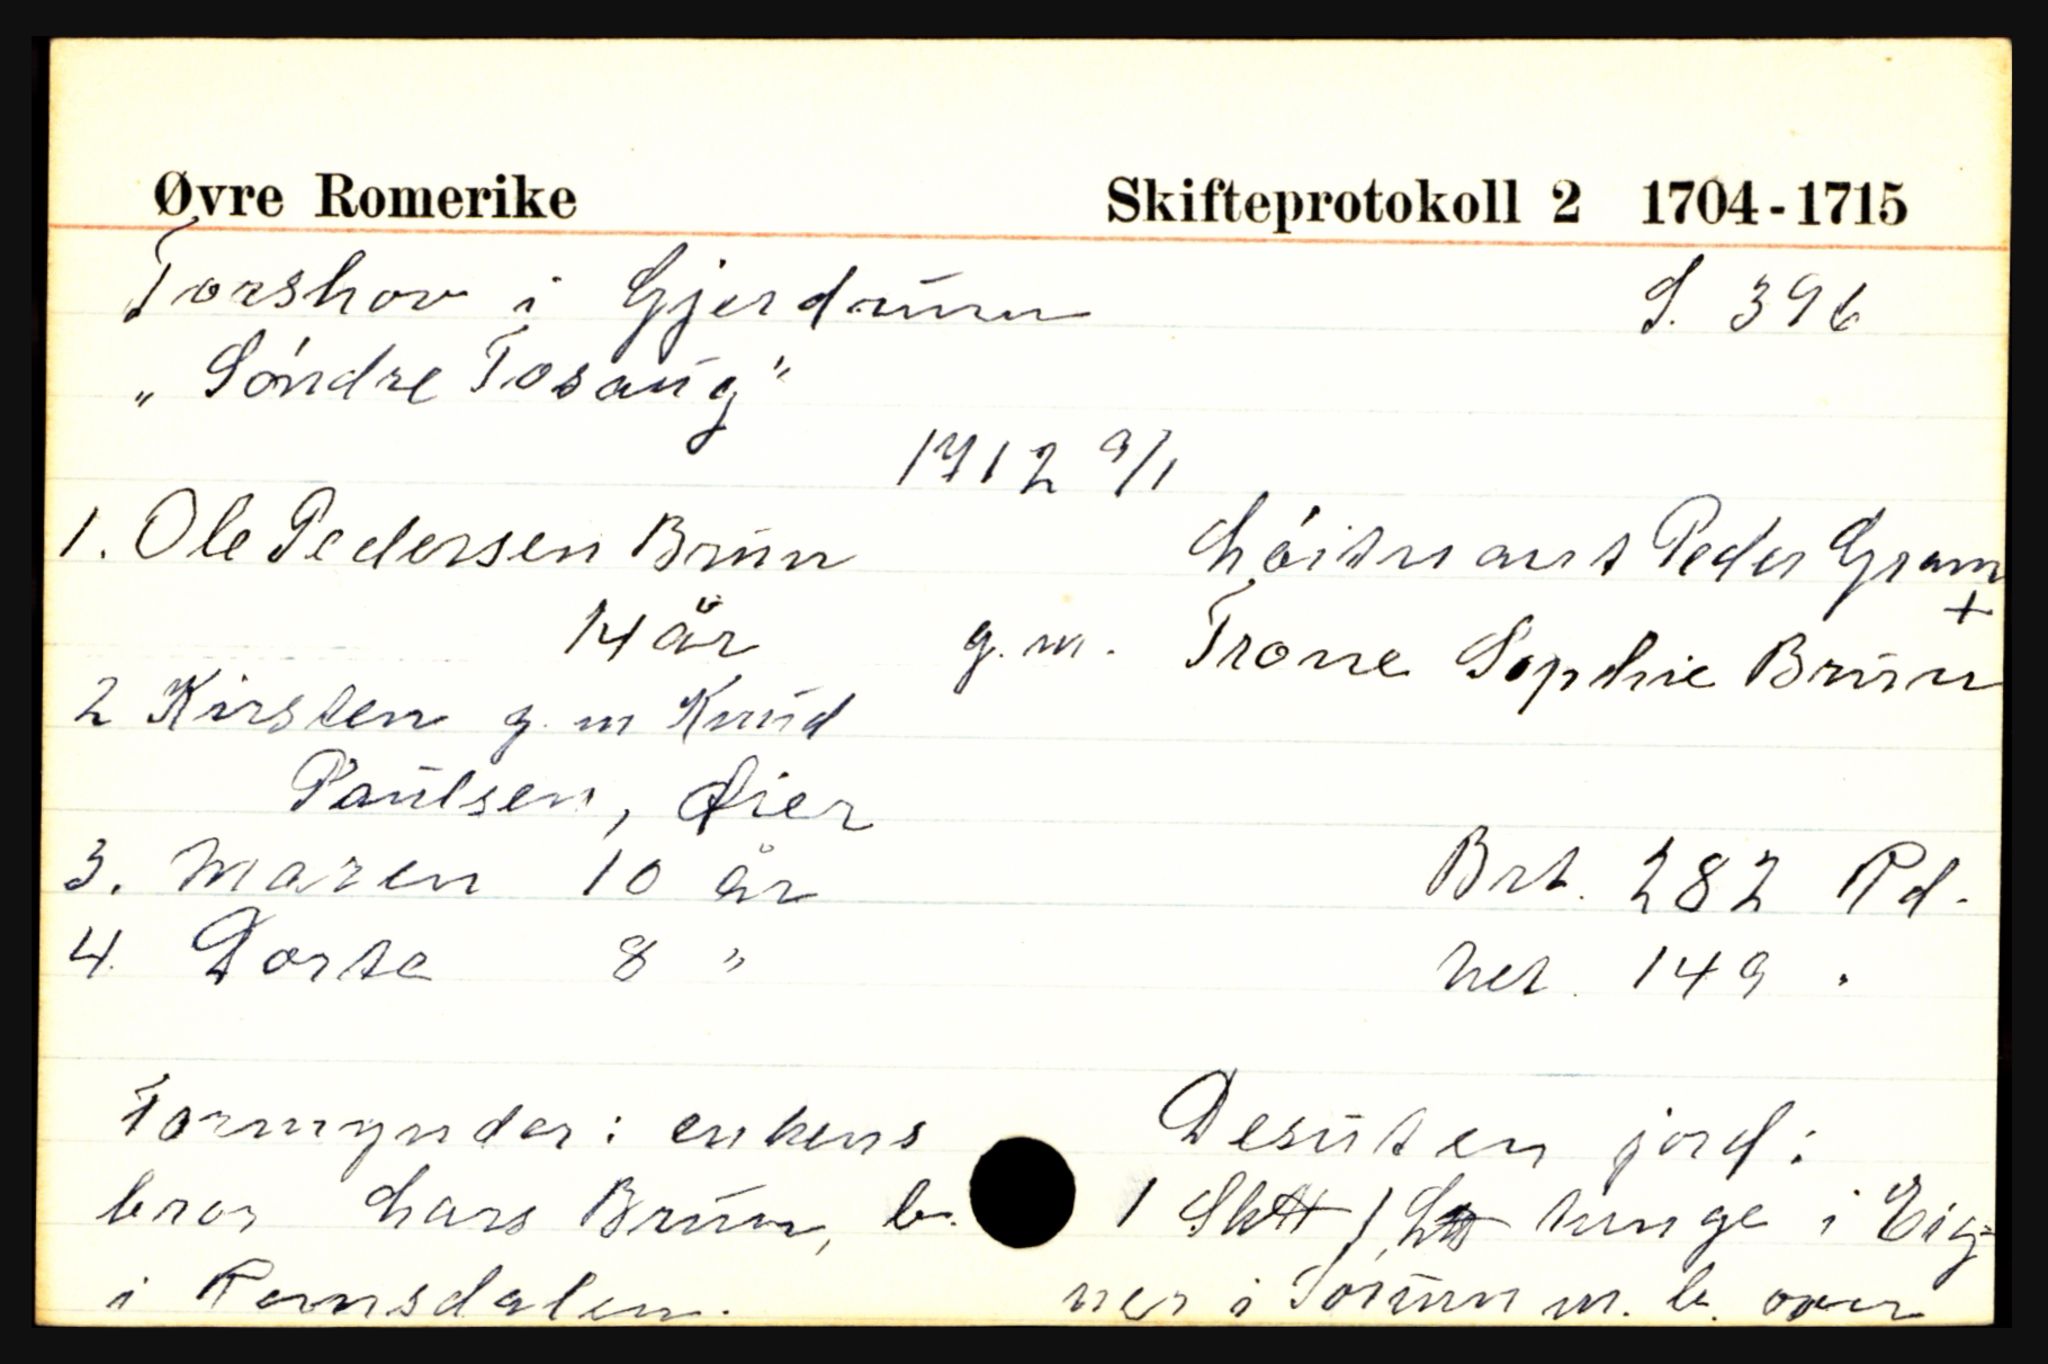 Øvre Romerike Skifteprotokoll 2 1704-1715
Torshov i Gjerdrum S. 396
„Søndre Tosaug"
1712 9/1
1. Ole Pedersen Brun Løitnant Peder Gram
14 år g.m. Trone Sophie Brun +
2 Kirsten g.m Knud
Paulsen, Øier
3. Maren 10 år Brt. 282 Rd.
4. Dorte 8 " Net. 149 "
Formynder: enkens Desuten jord:
bror Lars Brun, b. 1 Sk 1 tunge i Eig-
i Romsdalen. ner i Sørum m. b. over